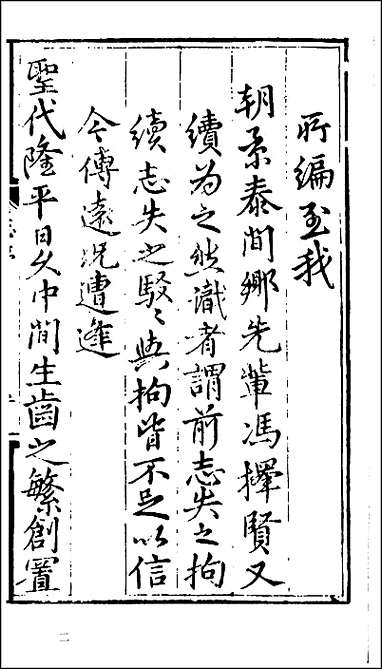 所編至我
朝景泰間鄉先輩馮擇賢又
續為之然識者謂前志失之拘
續志失之駁〻與拘皆不足以信
今傳遠况遭逢
聖代隆平日久中間生齒之繁創置
二